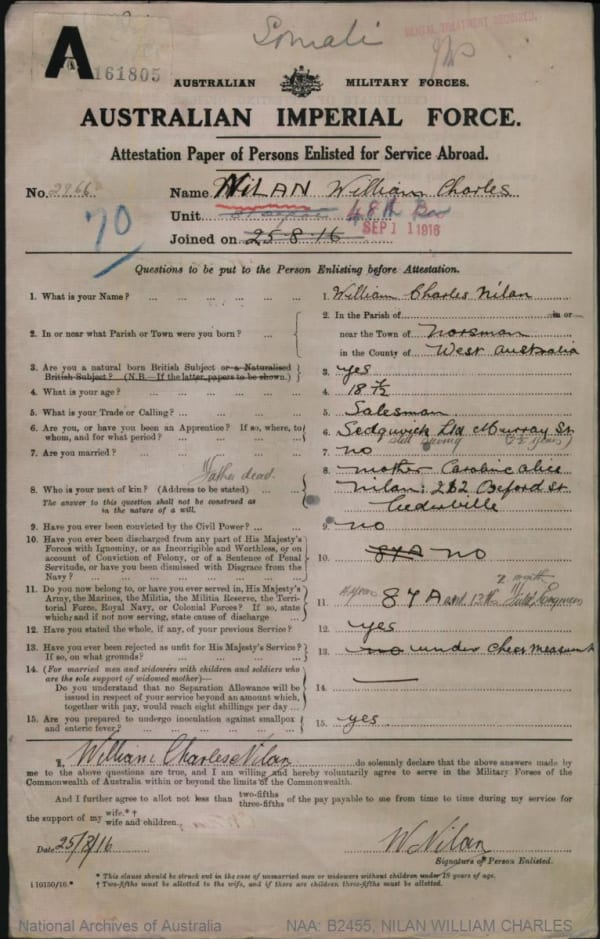 Somali
DENTAL TREATMENT REQUIRED.
A
161805
AUSTRALIAN MILITARY FORCES.
AUSTRALIAN IMPERIAL FORCE.
Attestation Paper of Persons Enlisted for Service Abroad.
No. 2966 Name NILAN William Charles
70
Unit 48th Bn
SEP 11 1916
Joined on 25-8-16
Questions to be put to the Person Enlisting before Attestation.
1. What is your Name? ... ... ... ... ... 1. William Charles Nilan
2. In or near what Parish or Town were you born? ... 2. In the Parish of in or
near the Town of Norsman
in the County of West Australia
3. Are you a natural born British Subject or a Naturalised
British Subject? (N.B.—If the latter, papers to be shown.) 3. yes
4. What is your age? ... ... ... ... ... 4. 18 7/12
5. What is your Trade or Calling? ... ... ... ... 5. Salesman
6. Are you, or have you been an Apprentice? If so, where, to
whom, and for what period? ... ... ... ... 6. Sedgwick Ltd Murray St
still serving (2½ years)
7. Are you married? ... ... ... ... ... 7. no
Father dead.
8. Who is your next of kin? (Address to be stated) ... ... 8. mother Caroline Alice
The answer to this question shall not be construed as
in the nature of a will. Nilan: 262 Oxford St
Leederville
9. Have you ever been convicted by the Civil Power? ... ... 9. no
10. Have you ever been discharged from any part of His Majesty's
Forces with Ignominy, or as Incorrigible and Worthless, or on
account of Conviction of Felony, or of a Sentence of Penal
Servitude, or have you been dismissed with Disgrace from the
Navy? ... ... ... ... ... 10. 87A no
11. Do you now belong to, or have you ever served in, His Majesty's
Army, the Marines, the Militia, the Militia Reserve, the Terri-
torial Force, Royal Navy, or Colonial Forces? If so, state
which; and if not now serving, state cause of discharge ... 11. 87A and 13th Field Engineers
12. Have you stated the whole, if any, of your previous Service? 12. yes
13. Have you ever been rejected as unfit for His Majesty's Service?
If so, on what grounds? ... ... ... ... 13. no under Chest Measurmt
14. (For married men and widowers with children and soldiers who
are the sole support of widowed mother)—
Do you understand that no Separation Allowance will be
issued in respect of your service beyond an amount which,
together with pay, would reach eight shillings per day ... 14. —
15. Are you prepared to undergo inoculation against smallpox
and enteric fever? ... ... ... ... ... 15. yes.
I, William Charles Nilan do solemnly declare that the above answers made by
me to the above questions are true, and I am willing and hereby voluntarily agree to serve in the Military Forces of the
Commonwealth of Australia within or beyond the limits of the Commonwealth.
And I further agree to allot not less than two-fifths
three-fifths of the pay payable to me from time to time during my service for
the support of my wife.*†
wife and children.
Date 25/8/16 W Nilan
Signature of Person Enlisted.
* This clause should be struck out in the case of unmarried men or widowers without children under 18 years of age.
† Two-fifths must be allotted to the wife, and if there are children three-fifths must be allotted.
‡ 10150/16.*
National Archives of Australia NAA: B2455, NILAN WILLIAM CHARLES